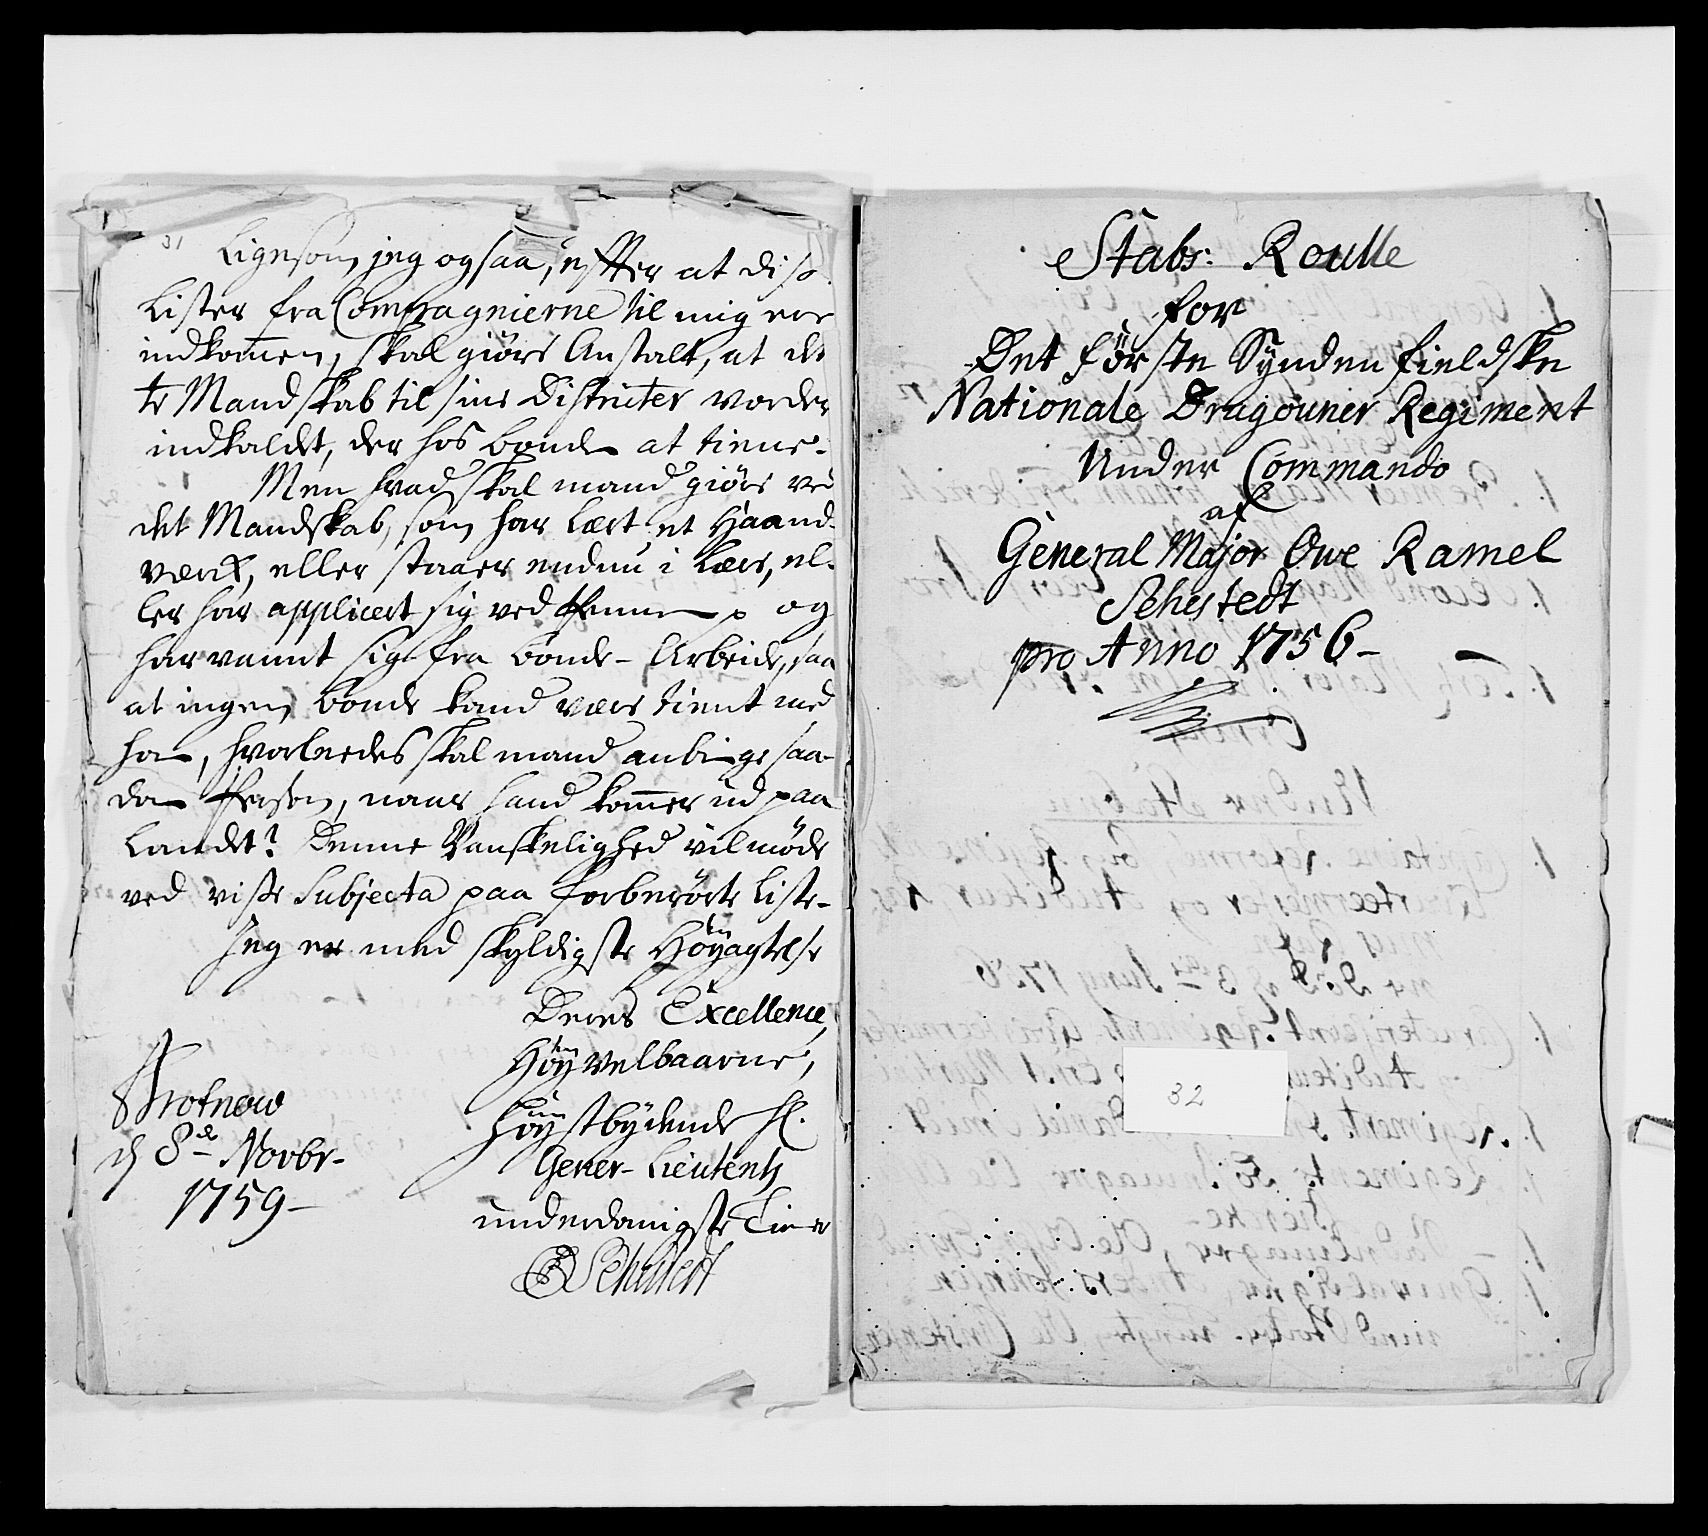 31
Ligesom jeg ogsaa, efter at diße
Lister fra Compagnierne til mig ere
indkomen, skal giöre Anstalt, at det
te Mandskab til sine Districter vorder
indkaldet, der hos bonde at tiene.
Men hvad skal mand giöre ved
det Mandskab, som har lært et Haand-
værk, eller staaer endnu i Lære, el-
ler har appliceret sig ved og
har vænnt sig fra bonde-Arbeide, saa
at ingen bonde kand være tient med
ham, hvorledes skal mand anbringe saa-
dan Person, naar hand kommer ud paa
Landet? Denne Vanskelighed vil möde
ved viße Subjecta paa forberörte Liste.
Jeg er med skyldigste Höyagtelse
Deres Excellence,
Höyvelbaarne,
Höystbydende Hr.
Gener-Lieutenth
underdanigste Tiener
d 8de Novbr.
1759
Stabs: Roulle
for
Det förste Synden fieldske
Nationale Dragouner Regiment
Under Commando
af
General Major Owe Ramel
Sehestedt
pro Anno 1756
32